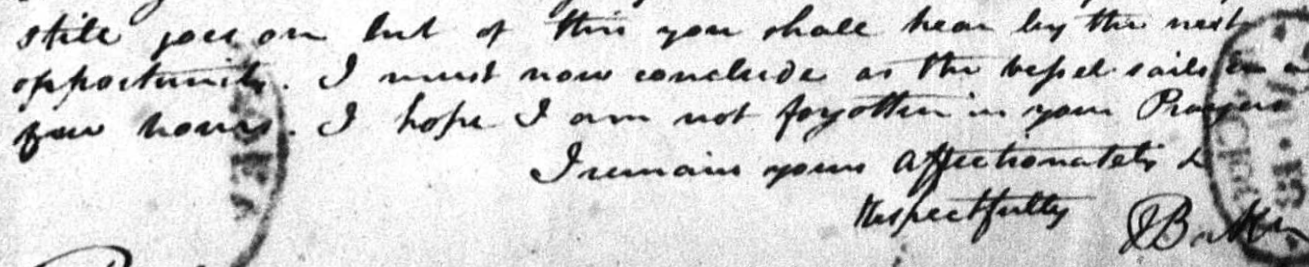 still goes on but of this you shall hear by the next
opportunity. I must now conclude as the vessel sails in a
few hours. I hope I am not forgotten in your Prayers
I remain yours affectionately &
Respectfully